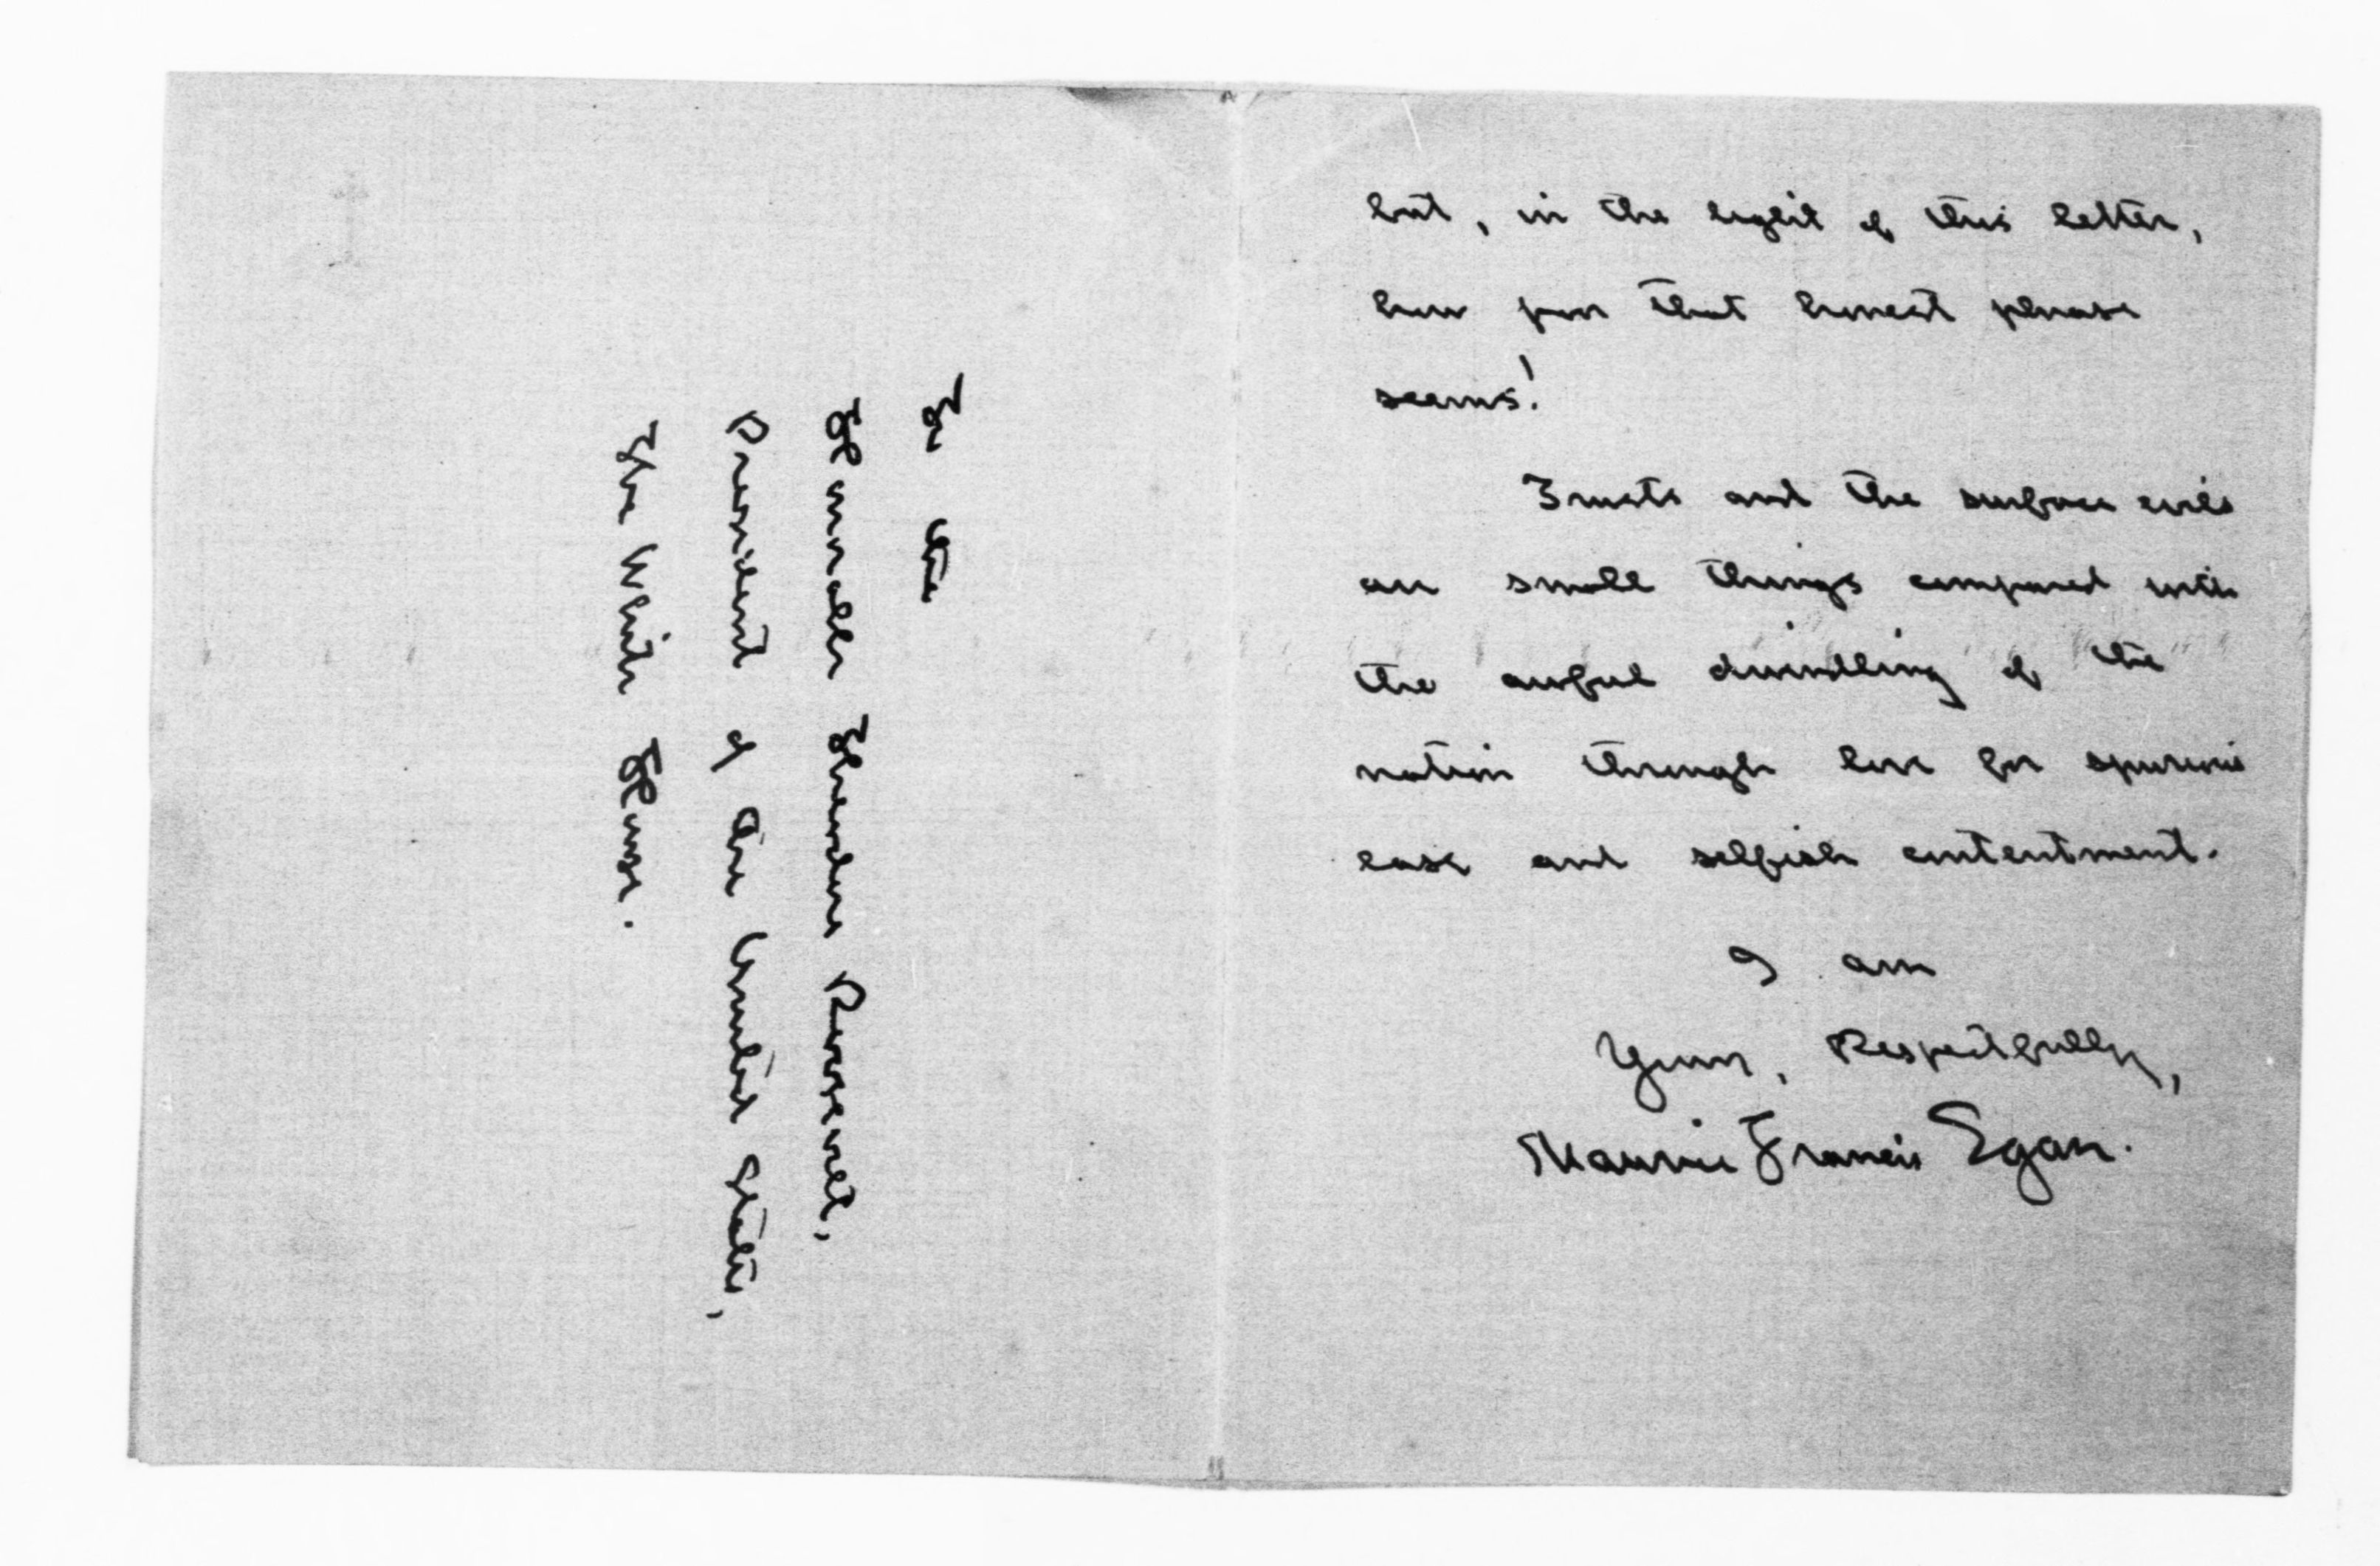 To the
Honorable Theodore Roosevelt,
President of the United States,
The White House.
but, in the light of this letter,
how poor that honest phrase
seems!
Trusts and the surface evils
are small things compared with
the awful dwindling of the
nation through love for spurious
ease and selfish contentment.
I am
Yours, Respectfully,
Maurice Francis Egan.